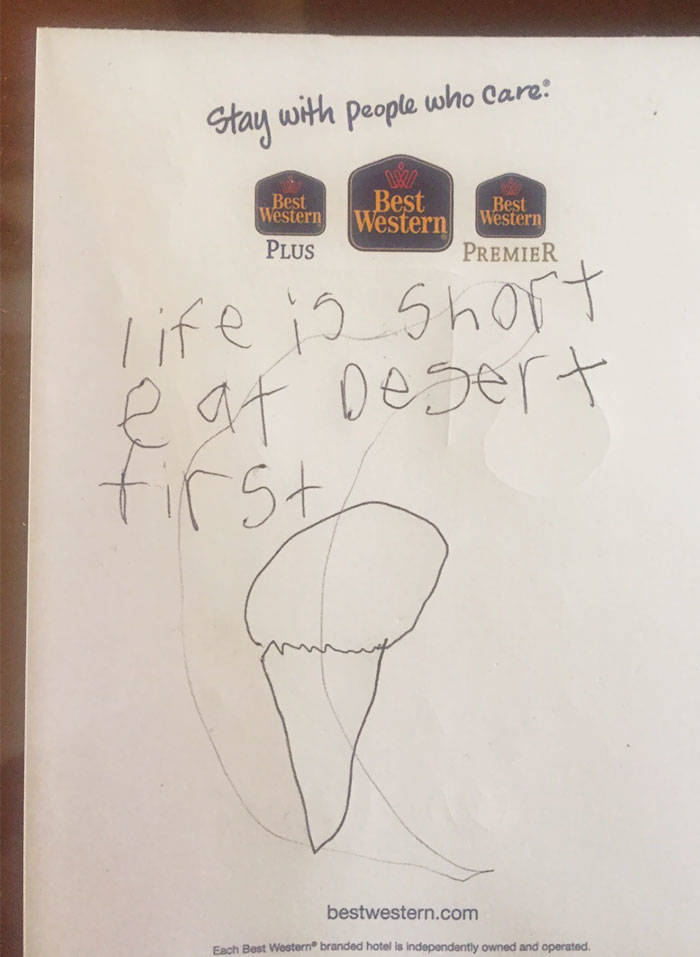 Stay with people who care.®
Best Western PLUS
Best Western®
Best Western PREMIER
life is short
eat Desert
first
bestwestern.com
Each Best Western® branded hotel is independently owned and operated.